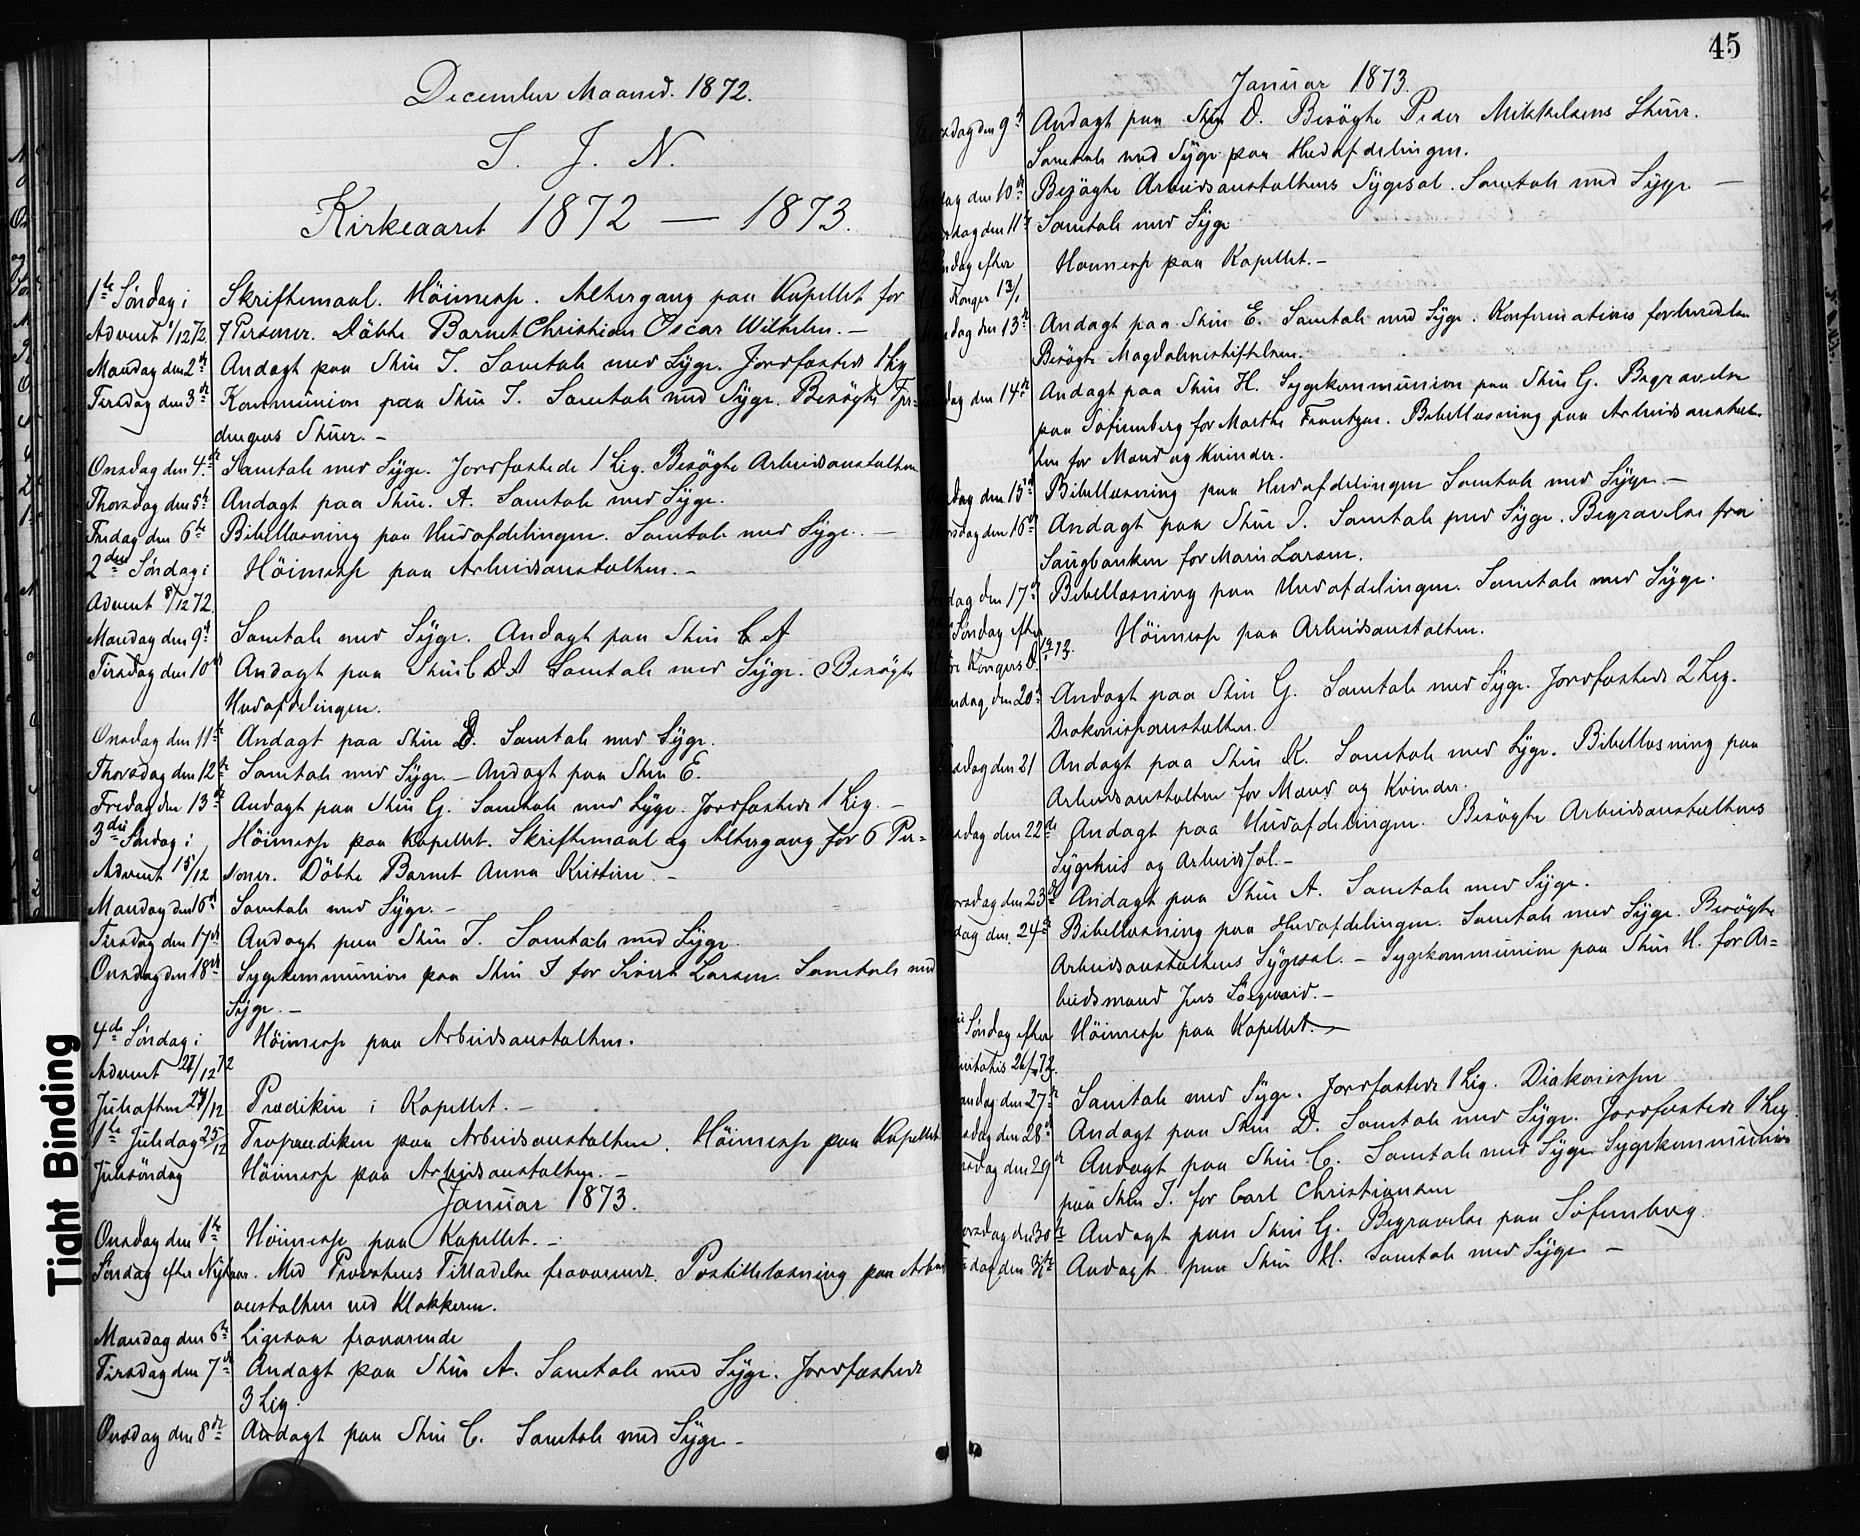 December Maaned. 1872.
I. J. N.
Kirkeaaret 1872 — 1873.
1te Söndag i Skriftemaal. Höimesse. Altergang paa Kapellet for
Advent 1/12 72 7 Personer. Döbte Barnet Christian Oscar Wilhelm. —
Mandag den 2den Andagt paa Stue I. Samtale med Syge. Jordfæstede 1 Lig
Tirsdag den 3die Kommunion paa Stue I. Samtale med Syge. Besögte
Stuer. —
Onsdag den 4de Samtale med Syge. Jordfæstede 1 Lig. Besögte Arbeidsanstalten
Thorsdag den 5te Andagt paa Stue. A. Samtale med Syge.
Fredag den 6te Bibellæsning paa Hudafdelingen. Samtale med Syge. —
2den Söndag i Höimesse paa Arbeidsanstalten. —
Advent 8/12 72.
Mandag den 9de Samtale med Syge. Andagt paa Stue A
Tirsdag den 10de Andagt paa Stue Samtale med Syge. Besögte
Hudafdelingen.
Onsdag den 11te Andagt paa Stue D. Samtale med Syge.
Thorsdag den 12te Samtale med Syge. — Andagt paa Stue E.
Fredag den 13de Andagt paa Stue G. Samtale med Syge. Jordfæstede 1 Lig. —
3die Söndag i Höimesse paa Kapellet. Skriftemaal og Altergang for 6 Per-
Advent 15/12 soner. Döbte Barnet Anna Kristine. —
Mandag den 16de Samtale med Syge. —
Tirsdag den 17de Andagt paa Stue I. Samtale med Syge.
Onsdag den 18de Sygekommunion paa Stue I for Sivert Larsen. Samtale med
Syge. —
4de Söndag i Höimesse paa Arbeidsanstalten.
Advent /12 72
Juleaften 24/12 Prædiken i Kapellet. —
1te Juledag 25/12 Froprædiken paa Arbeidsanstalten. Höimesse paa Kapellet
Julesöndag Höimesse paa Arbeidsanstalten. —
Januar 1873.
Onsdag den 1te Höimesse paa Kapellet. —
Söndag efter Nytaar. Med Provstens Tilladelse fraværende. Postillelæsning paa Arbeids
anstalten ved Klokkeren.
Mandag den 6te Ligesaa fraværende
Tirsdag den 7de Andagt paa Stue A. Samtale med Syge. Jordfæstede
3 Lig.
Onsdag den 8de Andagt paa Stue C. Samtale med Syge —
45
Januar 1873.
dag den 9de Andagt paa Stue D. Besögte Peder Mikkelsens Stuer.
Samtale med Syge paa Hudafdelingen.
dag den 10de Besögte Arbeidsanstaltens Sygesal. Samtale med Syge —
dag den 11te Samtale med Syge
dag efter Höimesse paa Kapellet. —
Konger 13/1
dag den 13de Andagt paa Stue E. Samtale med Syge. Konfirmations forberedelse
Besögte Magdalenestiftelsen.
dag den 14de Andagt paa Stue H. Sygekommunion paa Stue G. Begravelse
paa Sofienberg for Marthe Frantzen. Bibellæsning paa Arbeidsanstal-
ten for Mænd og Kvinder.
dag den 15de Bibellæsning paa Hudafdelingen Samtale med Syge. —
dag den 16de Andagt paa Stue I. Samtale med Syge. Begravelse fra
Saugbanken for Maren Larsen.
dag den 17de Bibellæsning paa Hudafdelingen. Samtale med Syge.
Söndag efter Höimesse paa Arbeidsanstalten.
Kongers D. 19/1 73.
dag den 20de Andagt paa Stue G. Samtale med Syge. Jordfæstede 2 Lig.
Diakonisseanstalten.
dag den 21 Andagt paa Stue K. Samtale med Syge. Bibellæsning paa
Arbeidsanstalten for Mænd og Kvinder.
dag den 22de Andagt paa Hudafdelingen. Besögte Arbeidsanstaltens
Sygehus og Arbeidssal. —
dag den 23de Andagt paa Stue A. Samtale med Syge.
dag den 24de Bibellæsning paa Hudafdelingen. Samtale med Syge. Besögte
Arbeidsanstaltens Sygesal. — Sygekommunion paa Stue H. for Ar-
beidsmand Jens —
Söndag efter Höimesse paa Kapellet. —
26/1 73.
dag den 27de Samtale med Syge. Jordfæstede 1 Lig. Diakonissen
dag den 28de Andagt paa Stue D. Samtale med Syge. Jordfæstede 1 Lig.
dag den 29de Andagt paa Stue C. Samtale med Syge. Sygekommunion
paa Stue I. for Carl Christiansen
dag den 30te Andagt paa Stue G. Begravelse paa Sofienberg.
dag den 31te Andagt paa Stue H. Samtale med Syge —
Tight Binding